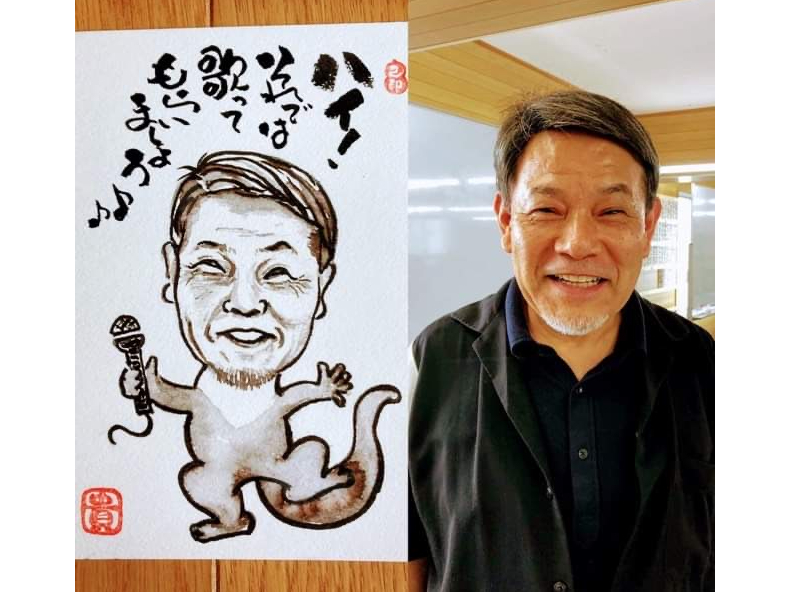 ハイ!
それでは
歌って
もらい
ましょう♪♪
貴